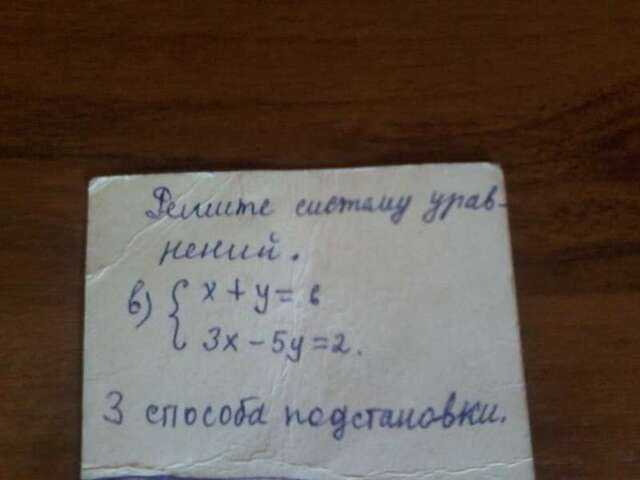 Решите систему урав-
нений.
в) { x + y = 6
3x - 5y = 2.
3 способа подстановки.